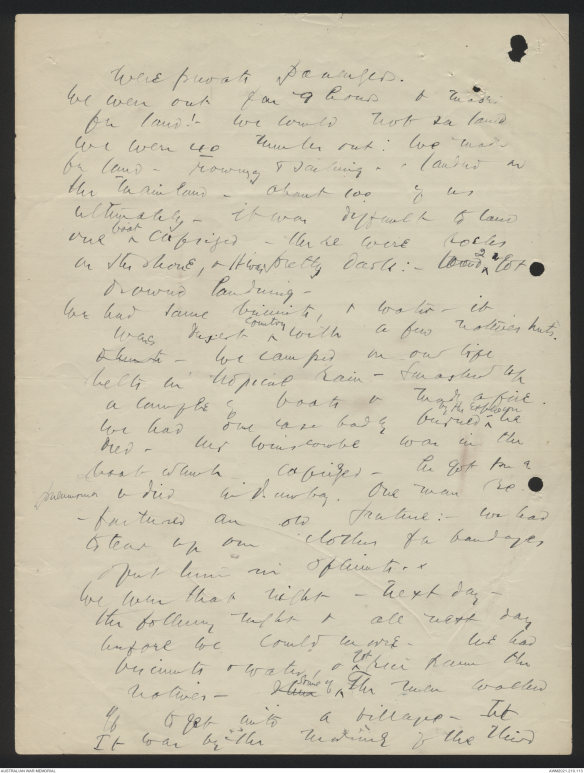 were private passengers.
We were out for 9 hours & made
for land! - we would not see land
We were 40 miles out: we made
for land - rowing & sailing - & landed on
the mainland - about 100 of us
ultimately - it was difficult to land
one boat capsized - there were rocks
on the shore, & it was pretty dark: - 2 got
drowned landing -
We had some biscuits, & water - it
was desert country with a few natives huts.
We camped in our life
belts in tropical rain - smashed up
a couple of boats & made a fire.
We had one case badly burned by the explosion he
died - Mr Winscombe was in the
boat which capsized - he got
pneumonia & died in Bombay. One man re-
-fractured an old fracture: - we had
to tear up our clothes for bandages
& put him in splints. -
We were that night - next day -
the following night & all next day
before we could move - We had
biscuits & water, & got rice from the
natives - Some of the men walked
off to get into a village - It
It was by the the morning of the third
AUSTRALIAN WAR MEMORIAL